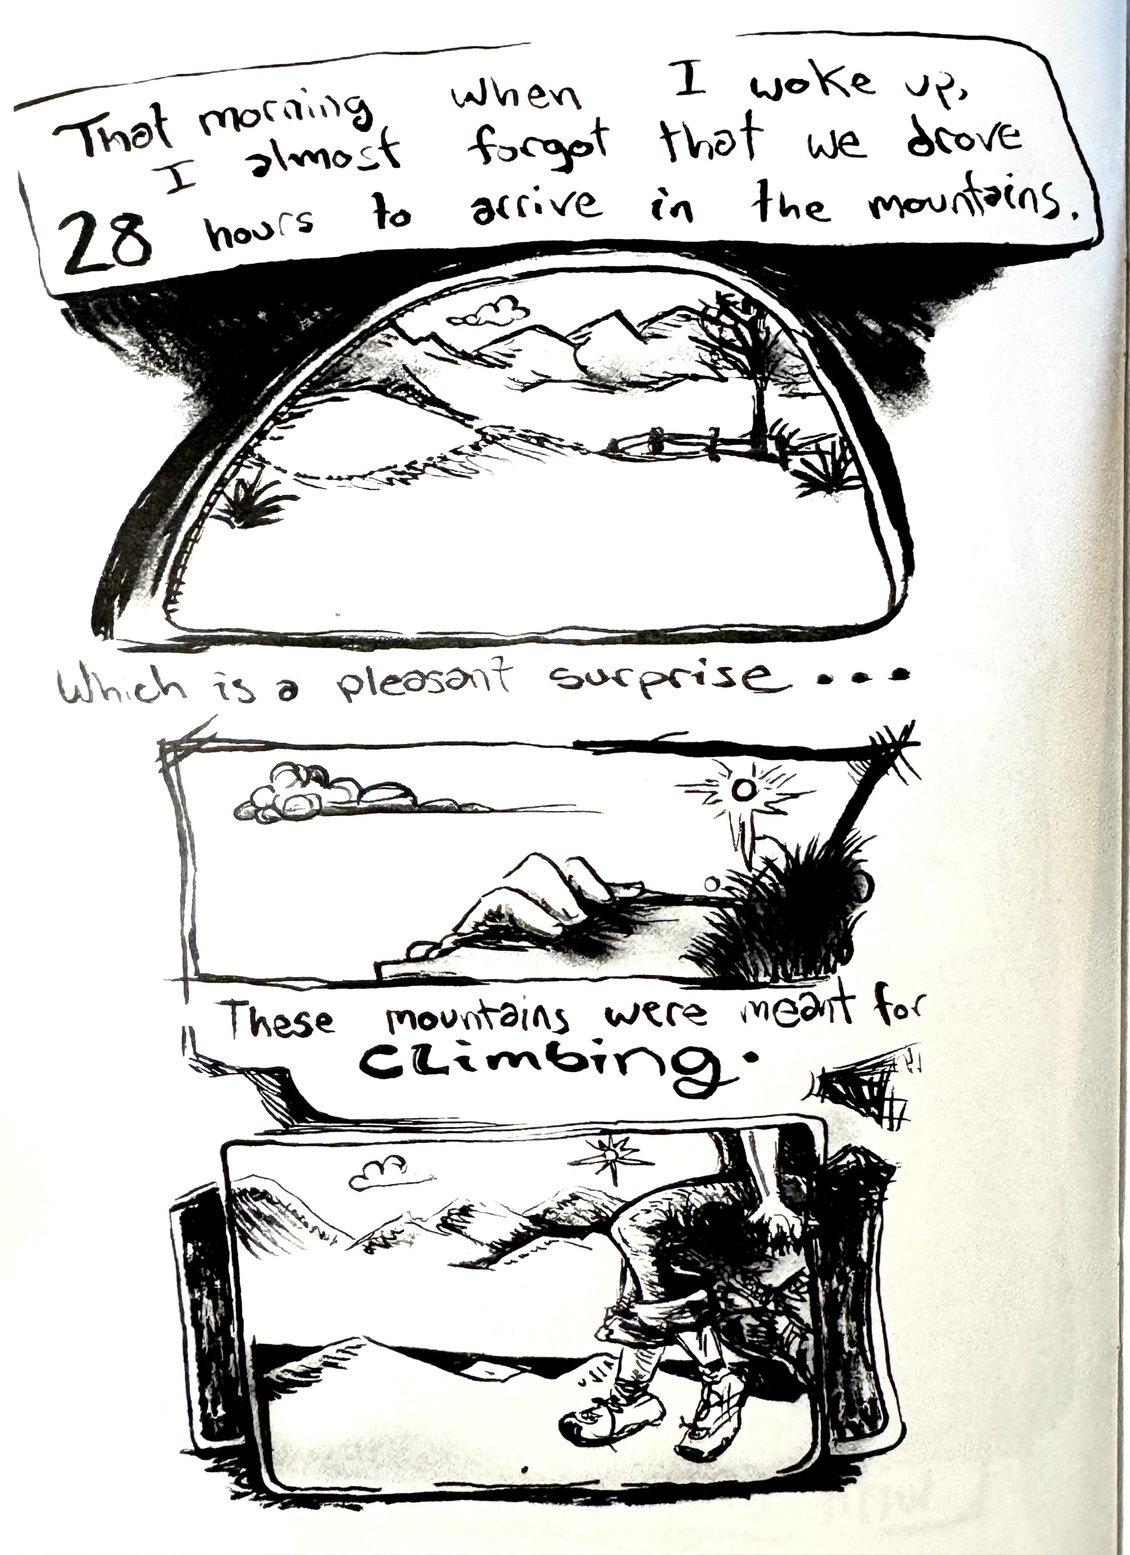 That morning when I woke up,
I almost forgot that we drove
28 hours to arrive in the mountains.
Which is a pleasant surprise...
These mountains were meant for
CLimbing.